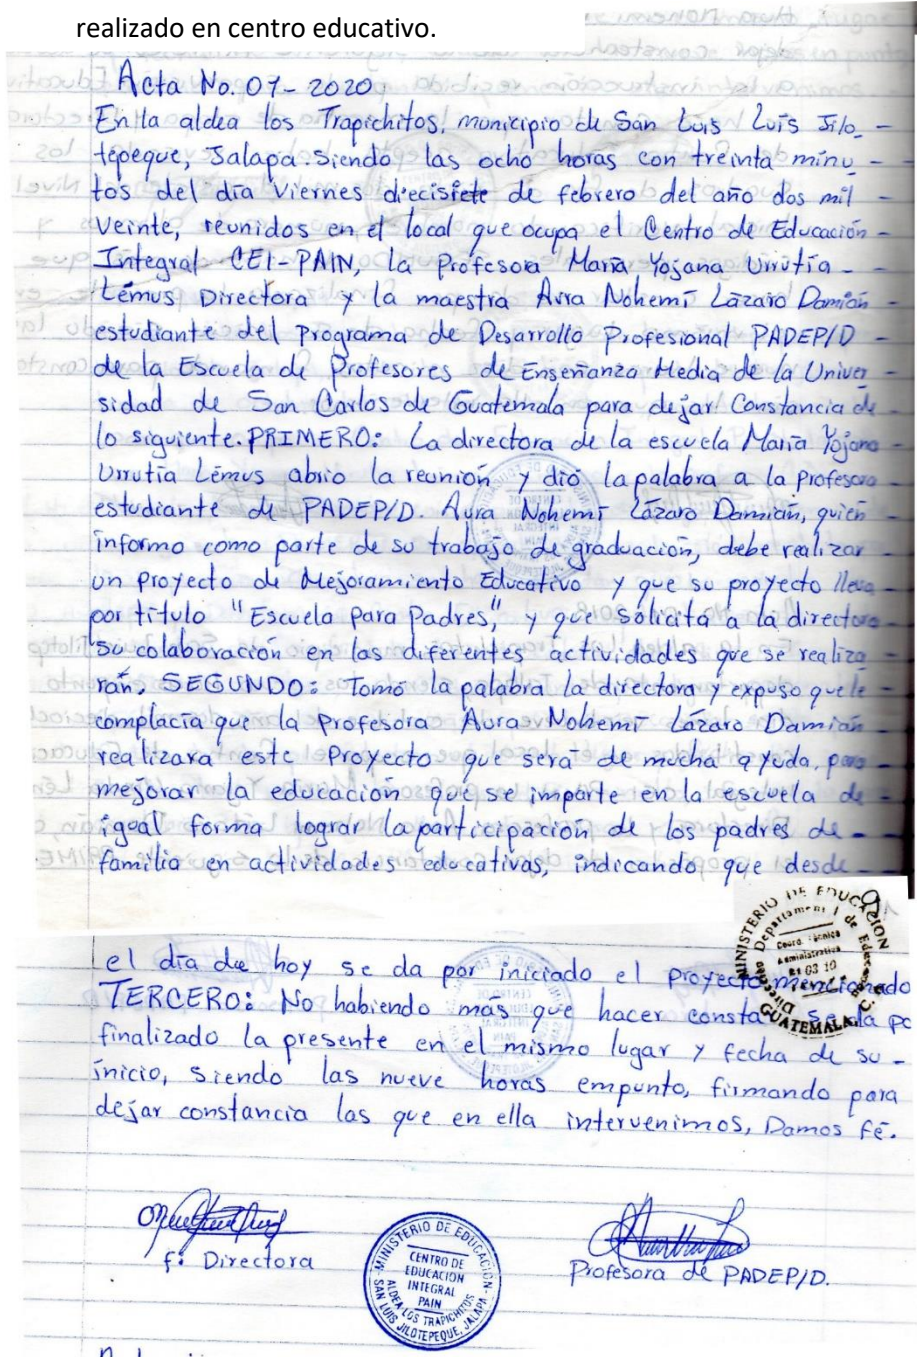 realizado en centro educativo.
Acta No. 07-2020
En la aldea los Trapichitos, municipio de San Luis Luis Jilo -
tepeque, Jalapa siendo las ocho horas con treinta minu -
tos del día Viernes diecisiete de febrero del año dos mil -
veinte, reunidos en el local que ocupa el Centro de Educación -
Integral CEI-PAIN, la Profesora María Yojana Urrutia -
Lémus Directora y la maestra Aura Nohemí Lázaro Damián
estudiante del programa de Desarrollo Profesional PADEP/D -
de la Escuela de Profesores de Enseñanza Media de la Univer
sidad de San Carlos de Guatemala para dejar Constancia de
lo siguiente. PRIMERO: La directora de la escuela María Yojana
Urrutia Lémus abrio la reunión y dió la palabra a la Profesora
estudiante de PADEP/D. Aura Nohemí Lázaro Damián, quién
informo como parte de su trabajo de graduación, debe realizar
un proyecto de Mejoramiento Educativo y que su proyecto lleva
por título "Escuela para Padres", y que sólicitá a la directora
su colaboración en las diferentes actividades que se realiza
rán. SEGUNDO: Tomó la palabra la directora y expuso que le
complacía que la profesora Aura Nohemí Lázaro Damián
realizara este Proyecto que será de mucha ayuda, para
mejorar la educación que se imparte en la escuela de
igual forma lograr la participación de los padres de -
familia en actividades educativas, indicando que desde
MINISTERIO DE EDUCACION
GUATEMALA
el día de hoy se da por iniciado el proyecto mencionado
TERCERO: No habiendo más que hacer constar se da po
finalizado la presente en el mismo lugar y fecha de su -
inicio, siendo las nueve horas empunto, firmando para
dejar constancia las que en ella intervenimos, Damos Fé.
f. Directora
MINISTERIO DE EDUCACION
CENTRO DE
EDUCACION
INTEGRAL
PAIN
ALDEA LOS TRAPICHITOS
SAN LUIS JILOTEPEQUE, JALAPA
Profesora de PADEP/D.